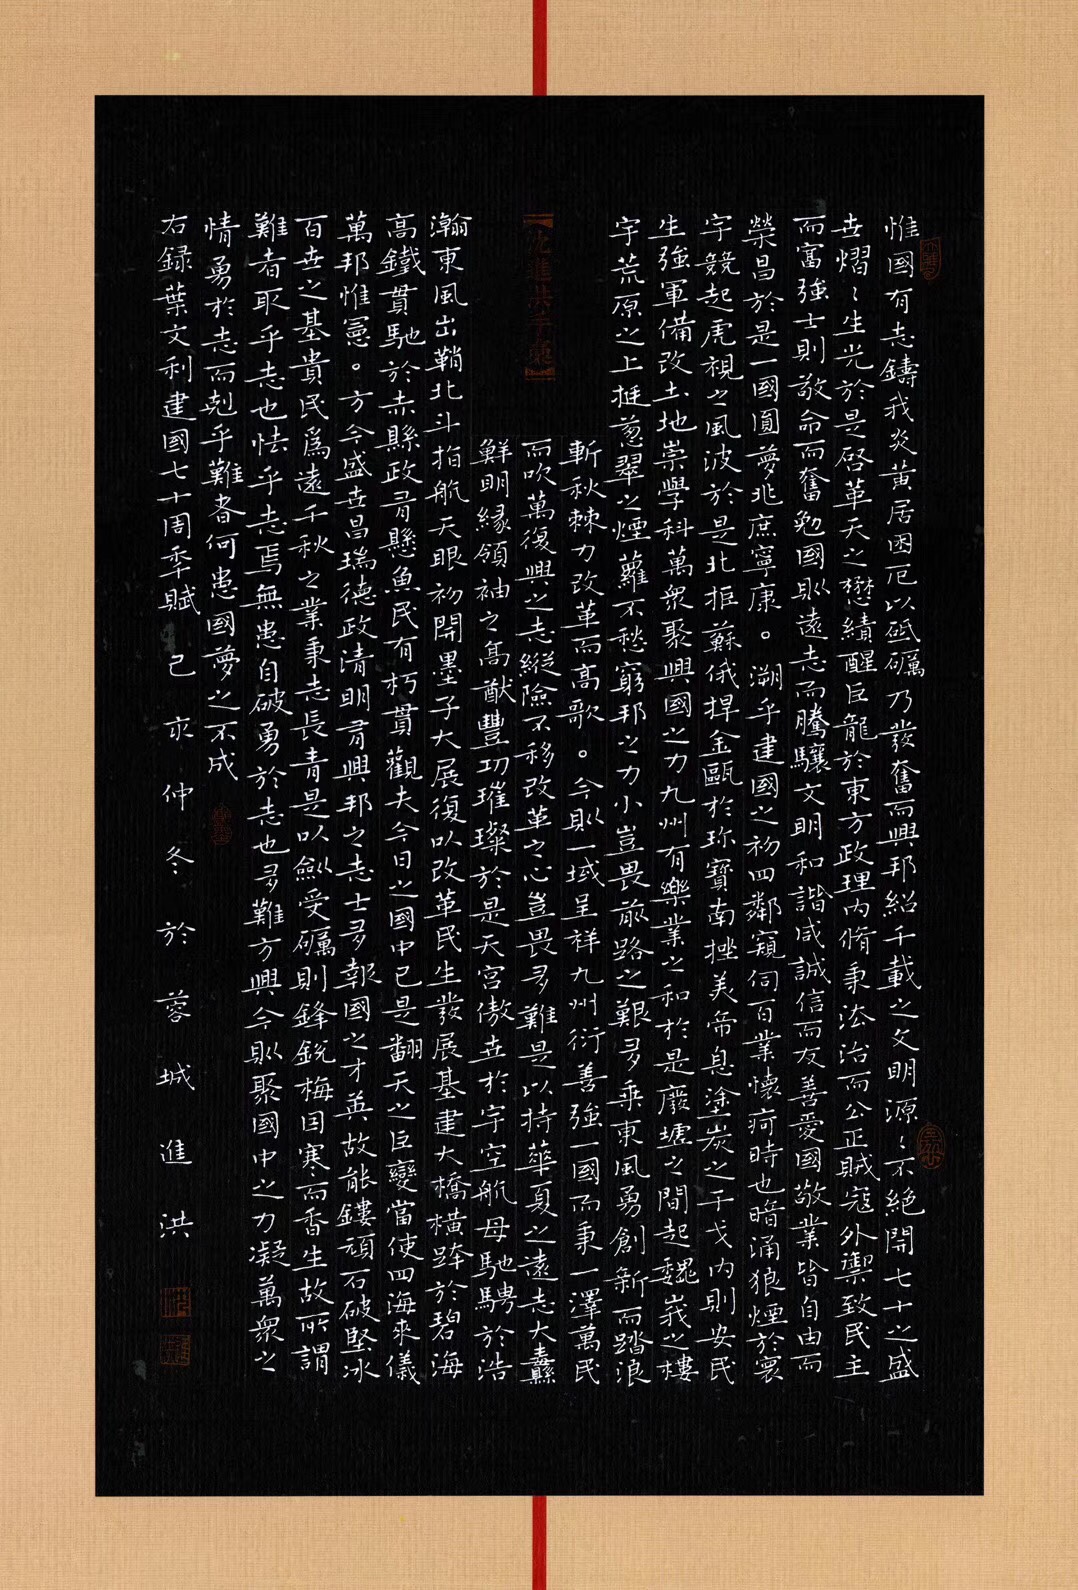 惟國有志鑄我炎黃居困厄以砥礪乃發奮而興邦紹千載之文明源々不絕開七十之盛
世熠々生光於是啓革天之懋績醒巨龍於東方政理內脩秉法治而公正賊寇外禦致民主
而富強士則敬命而奮勉國則遠志而騰驤文明和諧咸誠信而友善愛國敬業皆自由而
榮昌於是一國圓夢兆庶寧康。溯乎建國之初四鄰窺伺百業懷疴時也暗涌狼煙於寰
宇競起虎視之風波於是北拒蘇俄捍金甌於珍寶南挫美帝息塗炭之干戈內則安民
生強軍備改土地崇學科萬衆聚興國之力九州有樂業之和於是廢墟之間起巍峩之樓
宇荒原之上挺蔥翠之煙蘿不愁窮邦之力小豈畏前路之艱多乘東風勇創新而踏浪
斬秋棘力改革而高歌。今則一域呈祥九州衍善強一國而秉一澤萬民
而吹萬復興之志縱險不移改革之心豈畏多難是以持華夏之遠志大纛
鮮明緣領袖之高猷豐功璀璨於是天宮傲世於宇空航母馳騁於浩
瀚東風出鞘北斗指航天眼初開墨子大展復以改革民生發展基建大橋橫跨於碧海
高鐵貫馳於赤縣政有懸魚民有朽貫觀夫今日之國中已是翻天之巨變當使四海來儀
萬邦惟憲。方今盛世昌瑞德政清明有興邦之志士多報國之才英故能鏤頑石破堅冰
百世之基貴民爲遠千秋之業秉志長青是以劍受礪則鋒銳梅因寒而香生故所謂
難者取乎志也怯乎志焉無患自破勇於志也多難方興今則聚國中之力凝萬衆之
情勇於志而剋乎難者何患國夢之不成
右録葉文利建國七十周年賦 己亥仲冬於蓉城進洪